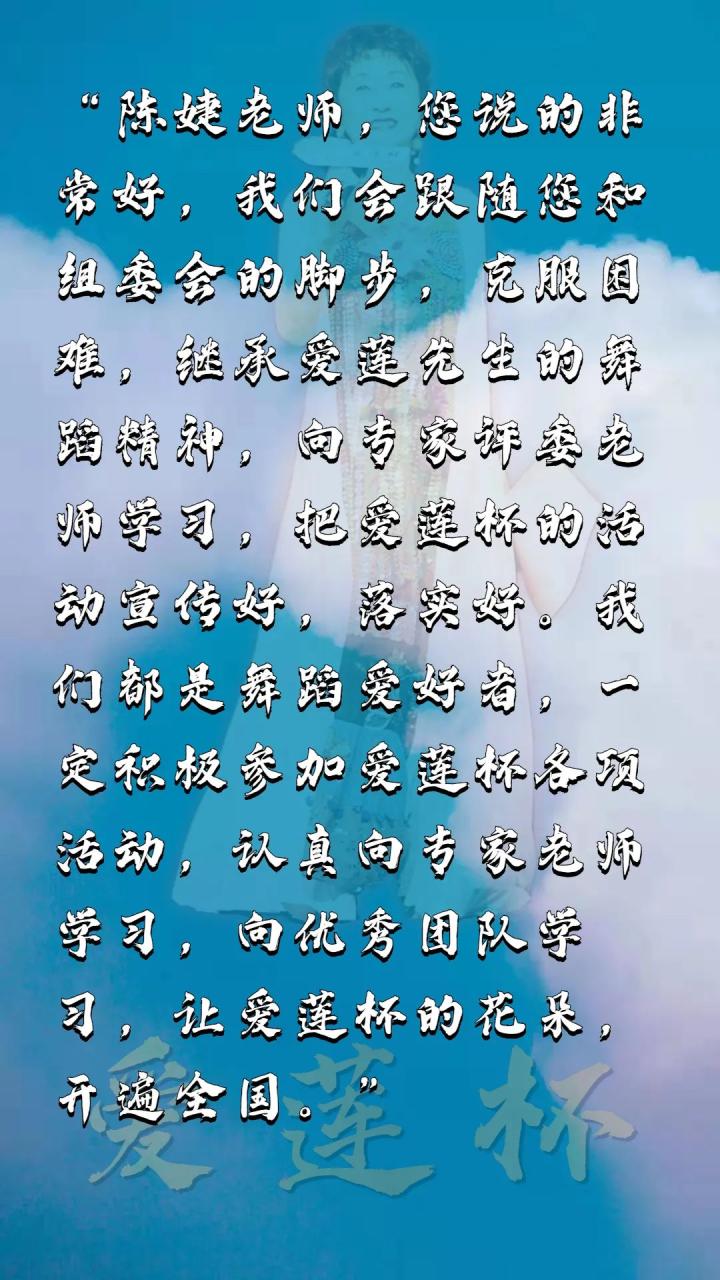 “陈婕老师，您说的非
常好，我们会跟随您和
组委会的脚步，克服困
难，继承爱莲先生的舞
蹈精神，向专家评委老
师学习，把爱莲杯的活
动宣传好，落实好。我
们都是舞蹈爱好者，一
定积极参加爱莲杯各项
活动，认真向专家老师
学习，向优秀团队学
习，让爱莲杯的花呆，
开遍全国。”
爱莲杯